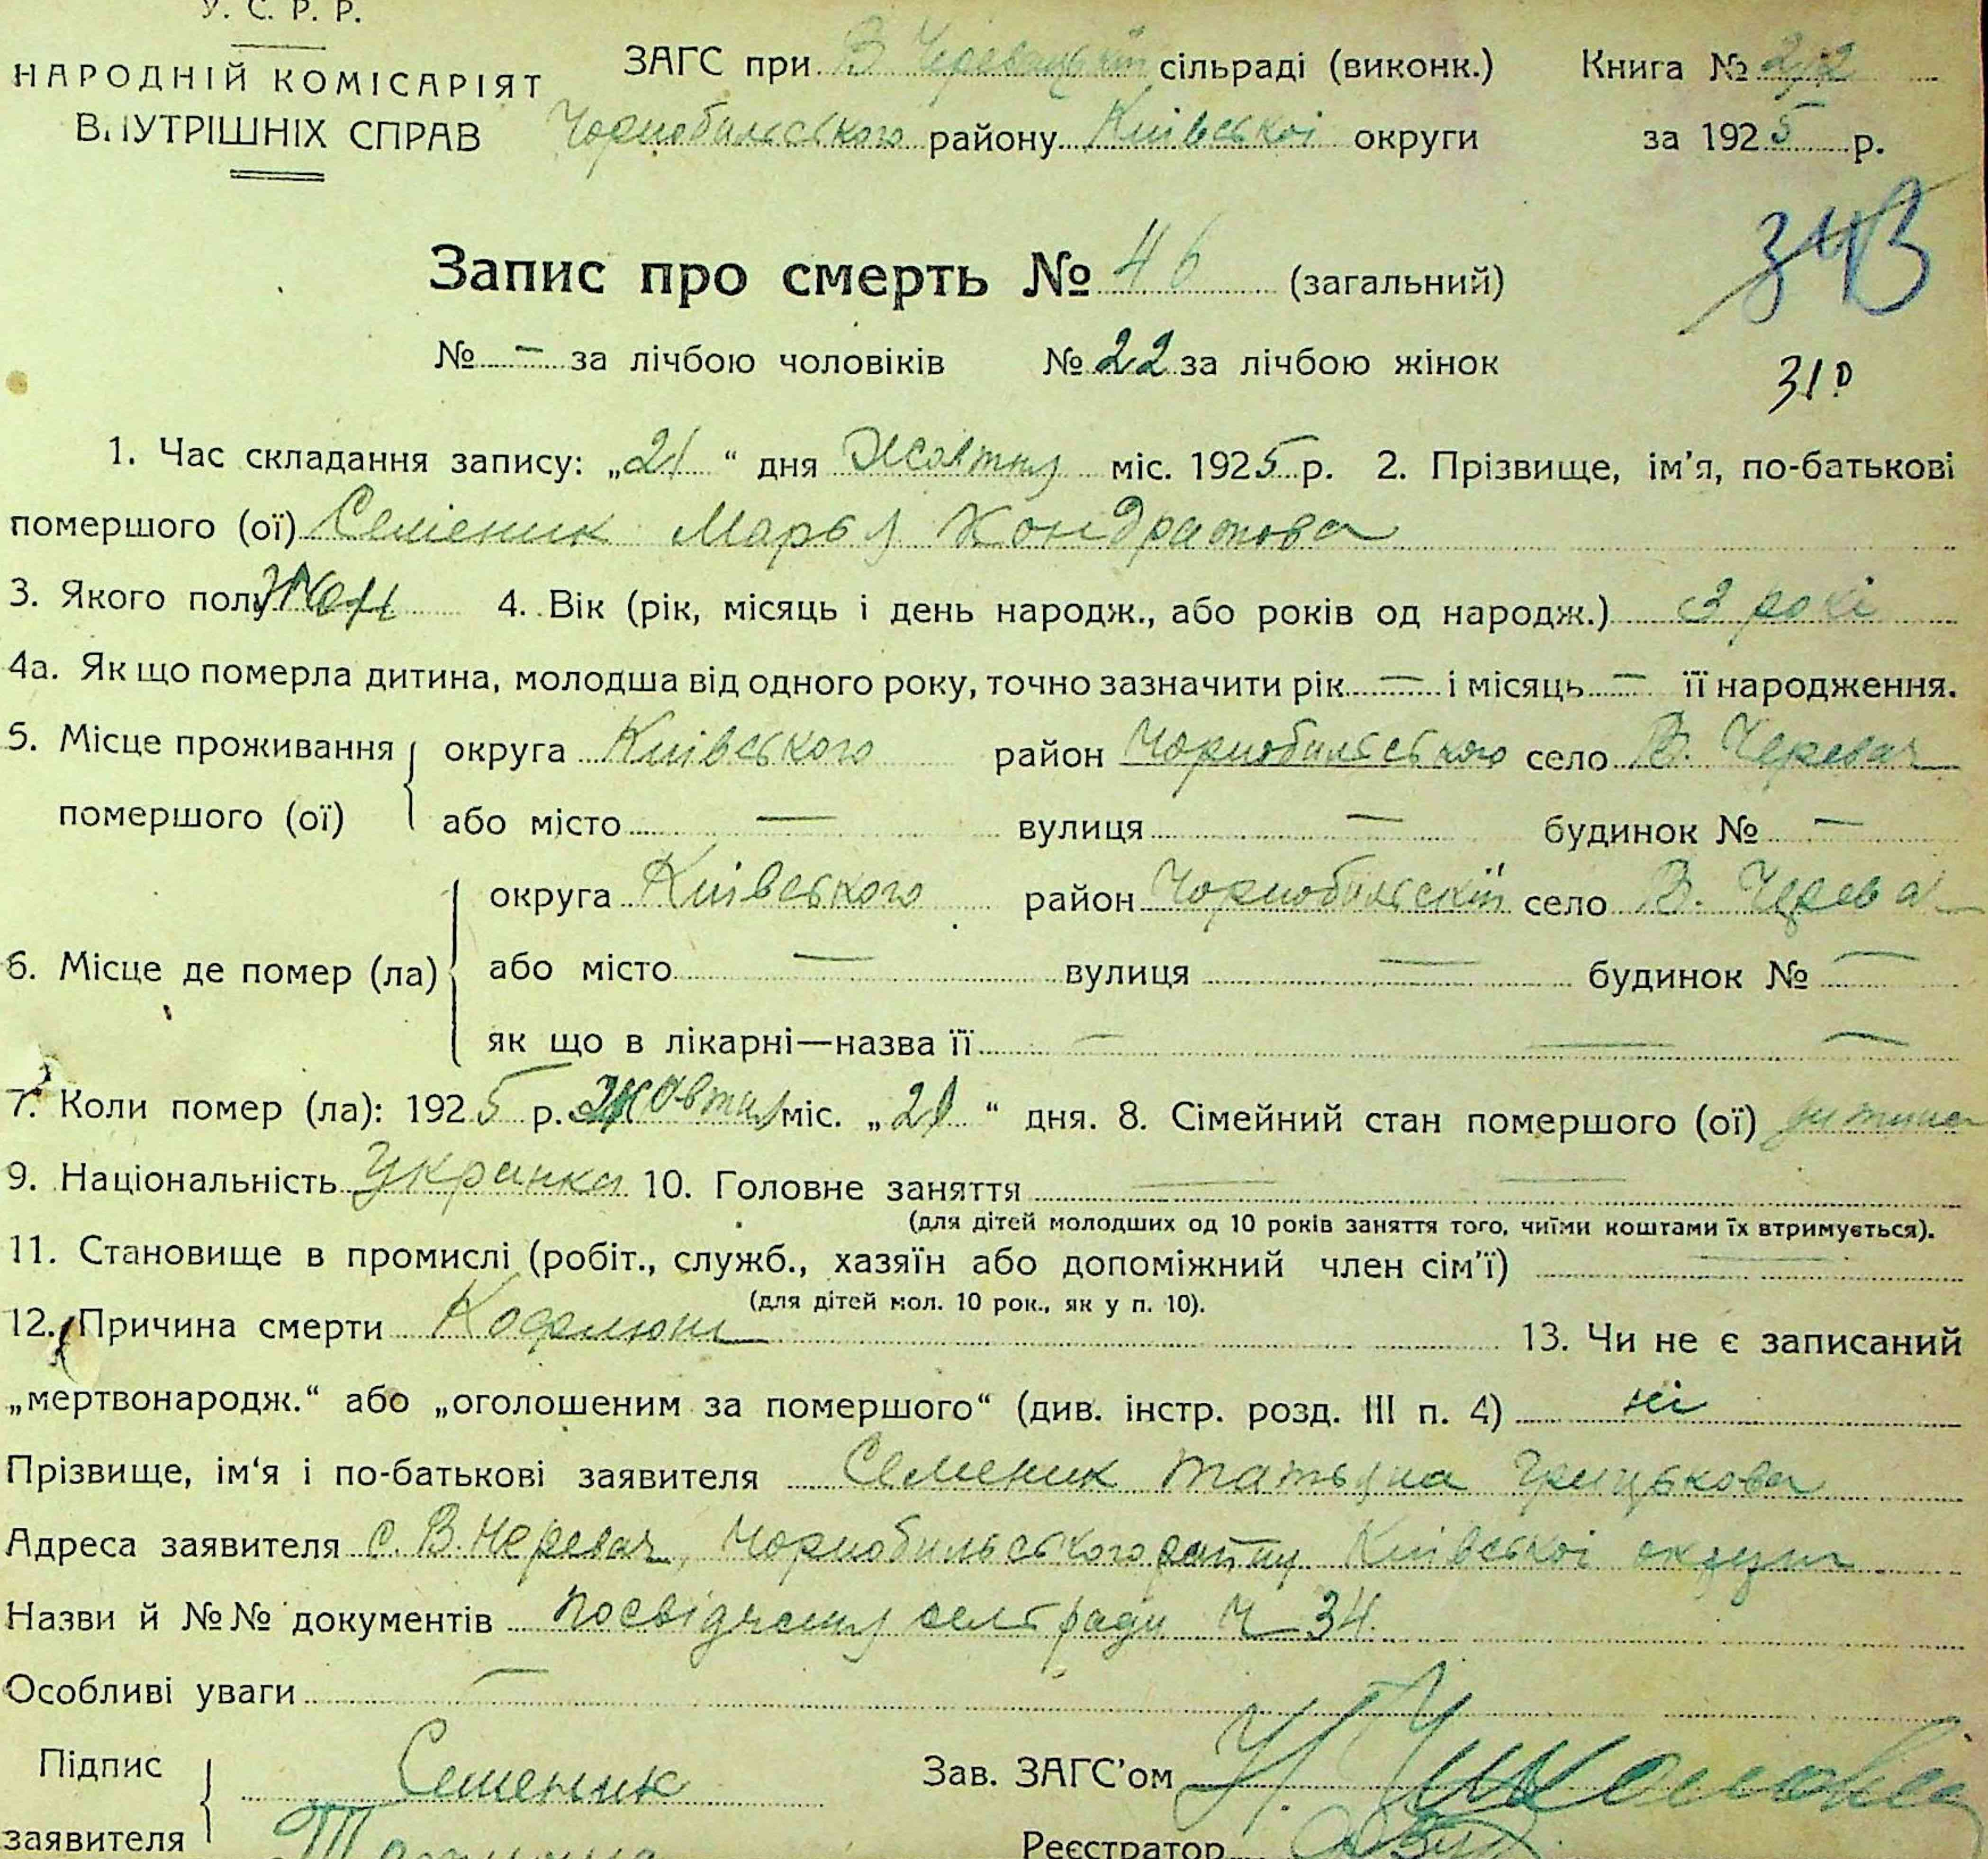 У. С. Р. Р.
НАРОДНІЙ КОМІСАРІЯТ
ВНУТРІШНІХ СПРАВ
ЗАГС при В Черевацькій сільраді (виконк.) Книга № 2/2
Чорнобильського району Київської округи за 1925 р.
343
Запис про смерть № 46 (загальний)
№ — за лічбою чоловіків № 22 за лічбою жінок
310
1. Час складання запису: „21“ дня Жовтня міс. 1925 р. 2. Прізвище, ім'я, по-батькові
помершого (ої) Семеник Марья Кондратова
3. Якого полу Жен 4. Вік (рік, місяць і день народж., або років од народж.) 3 рокі
4а. Як що померла дитина, молодша від одного року, точно зазначити рік — і місяць — її народження.
5. Місце проживання помершого (ої) округа Київського район Чорнобильського село В. Черевач
або місто — вулиця — будинок № —
6. Місце де помер (ла) округа Київського район Чорнобильскій село В. Черева
або місто — вулиця — будинок № —
як що в лікарні—назва її — — —
7. Коли помер (ла): 1925 р. Жовтня міс. „21“ дня. 8. Сімейний стан помершого (ої) дитина
9. Національність Украинка 10. Головне заняття — —
(для дітей молодших од 10 років заняття того, чиїми коштами їх втримується).
11. Становище в промислі (робіт., служб., хазяїн або допоміжний член сім'ї) —
(для дітей мол. 10 рок., як у п. 10).
12. Причина смерти Коделюш 13. Чи не є записаний
„мертвонародж.“ або „оголошеним за помершого“ (див. інстр. розд. III п. 4) ні
Прізвище, ім'я і по-батькові заявителя Семеник Татьяна Грицькова
Адреса заявителя С. В. Черевач, Чорнобильського району Київскоі округи
Назви й №№ документів посвідчення сельради Ч 34.
Особливі уваги —
Підпис заявителя Семеник
Татьяна
Зав. ЗАГС'ом
Реєстратор